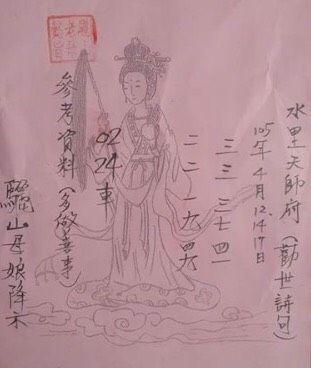 水里天師府(勸世詩句)
105年4月12.14.17日
三三 三七 四一
二二 一九
02
24
車
參考資料(多做善事)
驪山母娘降示